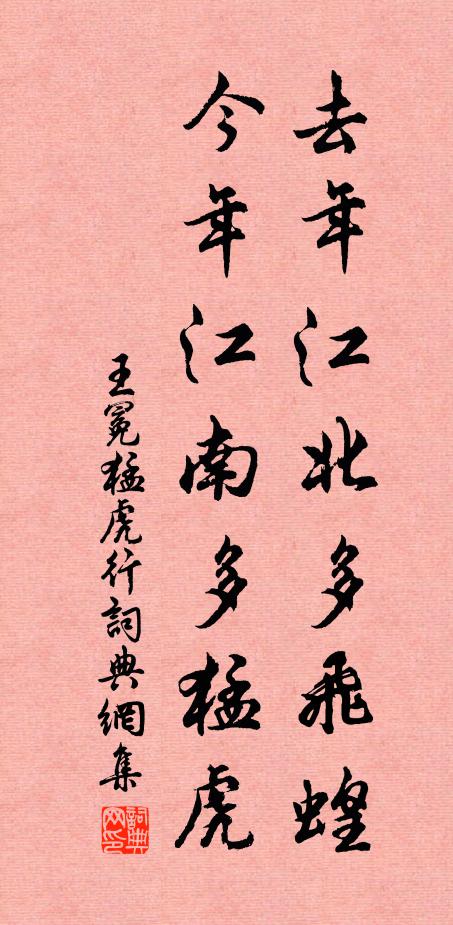 去年江北多飛蝗
今年江南多猛虎
王冕猛虎行詞典網集
詞典網印